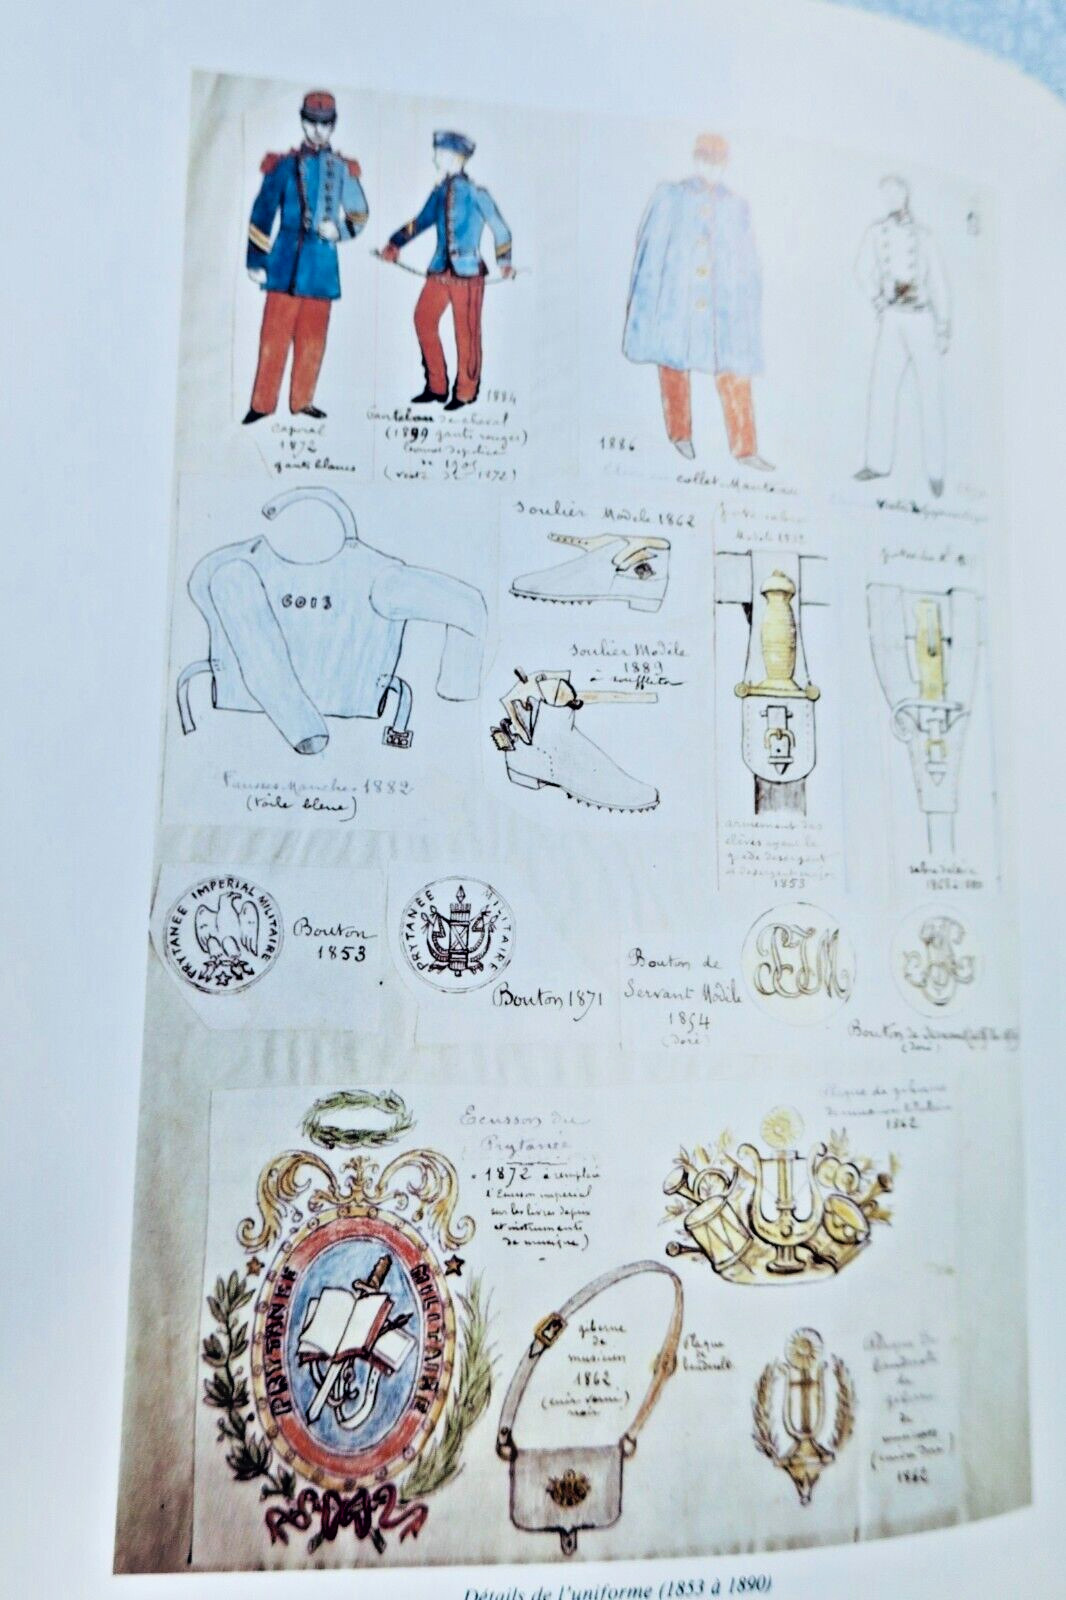 Caporal
1872
gants blancs
1884
Pantalon de cheval
(1899 gants rouges)
de 1905
(veste de 1872)
1886
collet-Manteau
6013
Fausses-Manches 1882
(toile bleue)
Soulier Modèle 1862
Soulier Modèle
1889
à soufflets
Modèle
armement des
élèves ayant le
grade de sergent
et de sergent major
1853
PRYTANÉE IMPERIAL MILITAIRE
Bouton
1853
PRYTANÉE MILITAIRE
Bouton 1871
Bouton de
Servant Modèle
1854
(doré)
PIM
Bouton de
(doré)
Ecusson du
Prytanée
1872 a remplacé
l'Ecusson impérial
sur les livres depuis
et instruments
de musique)
Plaque de giberne
de musicien
1862
PRYTANEE MILITAIRE
giberne
de
musicien
1862
(cuir verni)
noir
Plaque
de
baudrier
Plaque de
de
giberne
de
musicien
1862
Détails de l'uniforme (1853 à 1890)